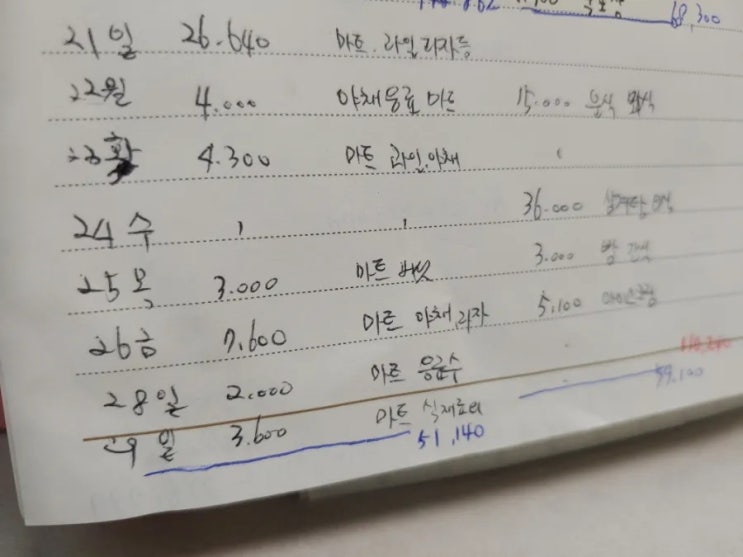 68,300
21일 26.640 마트.과일과자등
22월 4.000 야채음료 마트 15.000 분식 외식
23화 4.300 마트 과일.야채
24수 36.000
25목 3.000 마트 버섯 3.000 빵 간식
26금 7.600 마트 야채,과자 5,100
28일 2.000 마트 음료수
59.100
일 3.600 마트 식재료외
51,140